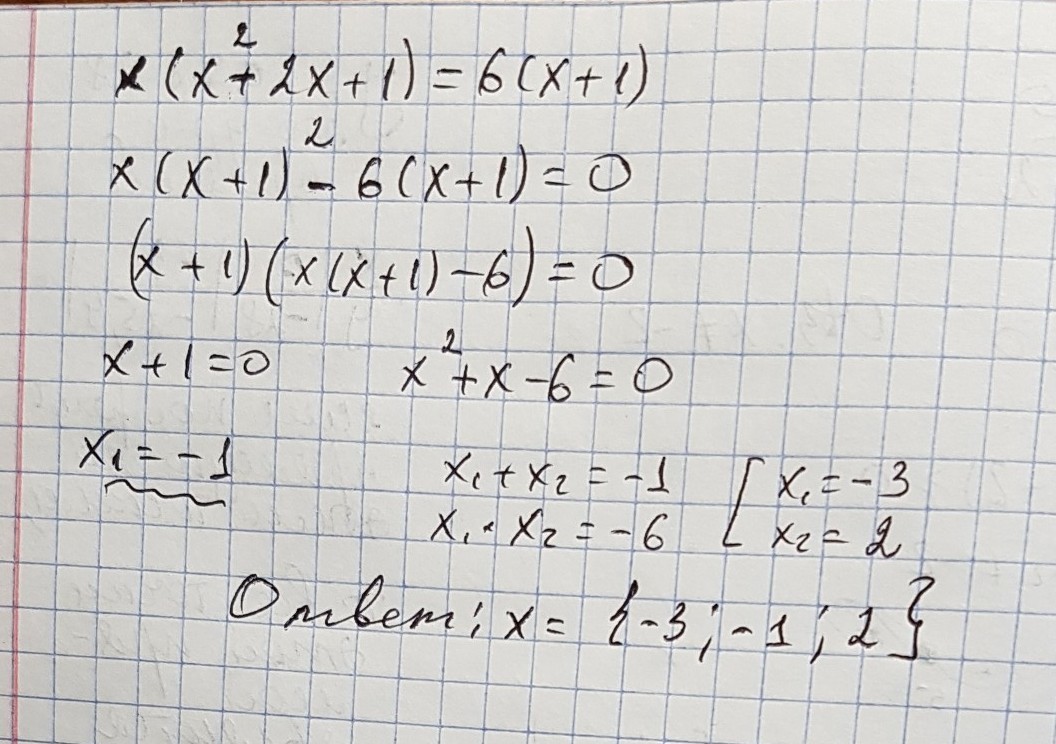 x(x²+2x+1)=6(x+1)
x(x+1)²-6(x+1)=0
(x+1)(x(x+1)-6)=0
x+1=0 x²+x-6=0
x₁=-1
x₁+x₂=-1 [x₁=-3
x₁·x₂=-6 x₂=2
Ответ: x={-3;-1;2}